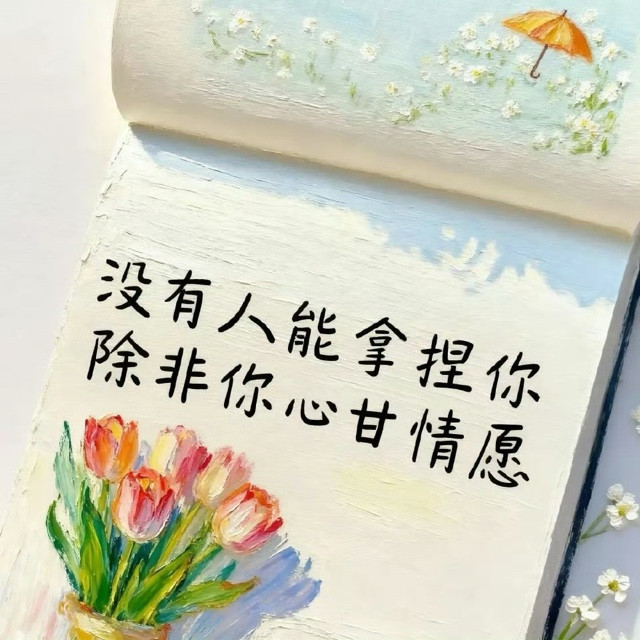 没有人能拿捏你
除非你心甘情愿